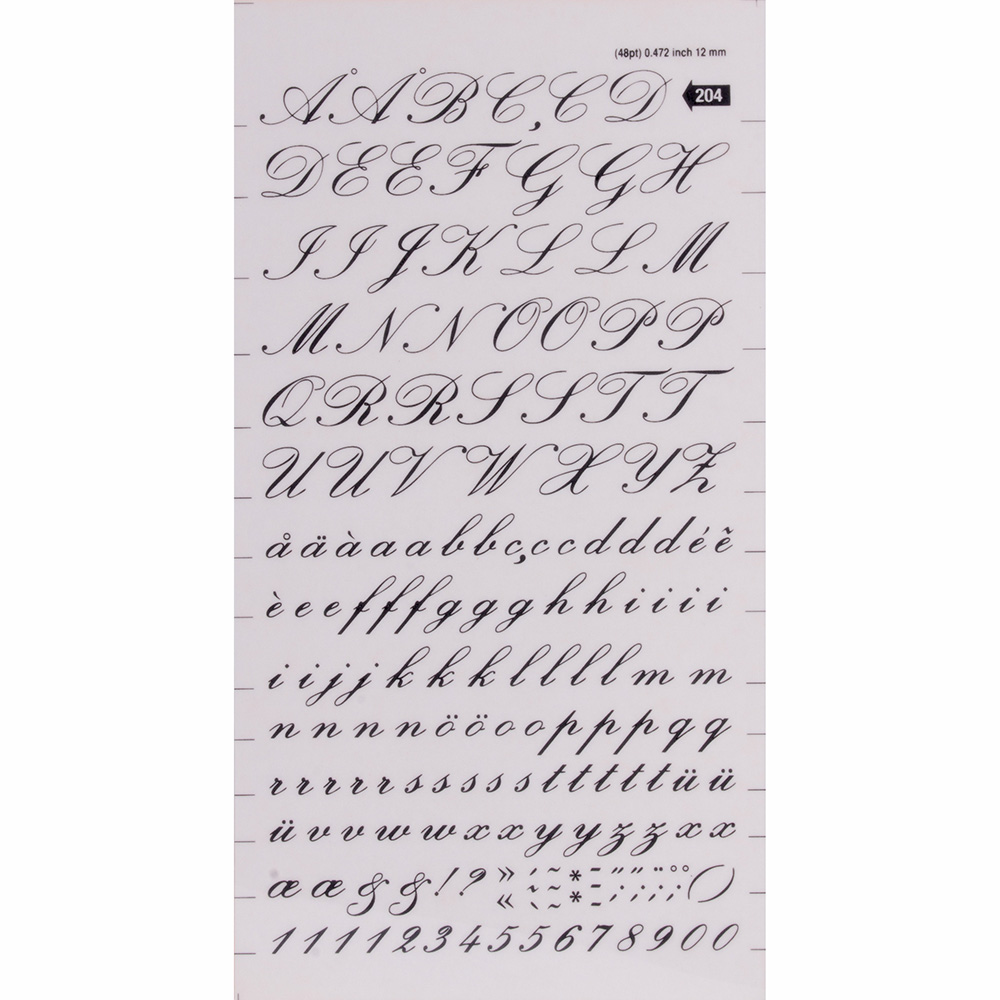 (48pt) 0.472 inch 12 mm
Å Å B Ç C D
204
D E E F G G H
I I J K L L M
M N N O O P P
Q R R S S T T
U U V W X Y Z
å ä à a a b b ç c c d d d é ẽ
è e e e f f f g g g h h i i i i
i i j j k k k l l l l m m
n n n n n ö ö o o p p p q q
r r r r r s s s s s t t t t t ü ü
ü v v w w x x y y z z x x
æ æ & & ! ?
1 1 1 1 2 3 4 5 5 6 7 8 9 0 0